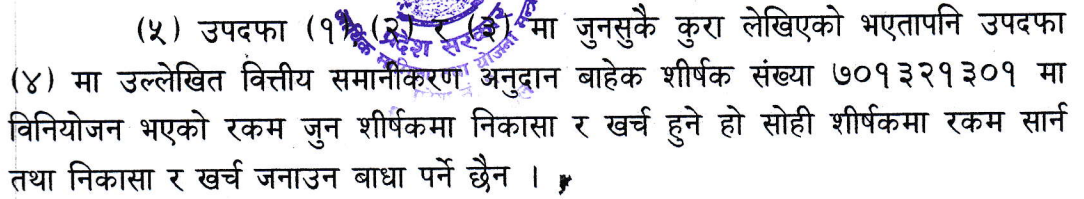 (५) उपदफा (१), (२) र (३) मा जुनसुकै कुरा लेखिएको भएतापनि उपदफा
(४) मा उल्लेखित वित्तीय समानीकरण अनुदान बाहेक शीर्षक संख्या ७०१३२१३०१ मा
विनियोजन भएको रकम जुन शीर्षकमा निकासा र खर्च हुने हो सोही शीर्षकमा रकम सार्न
तथा निकासा र खर्च जनाउन बाधा पर्ने छैन ।